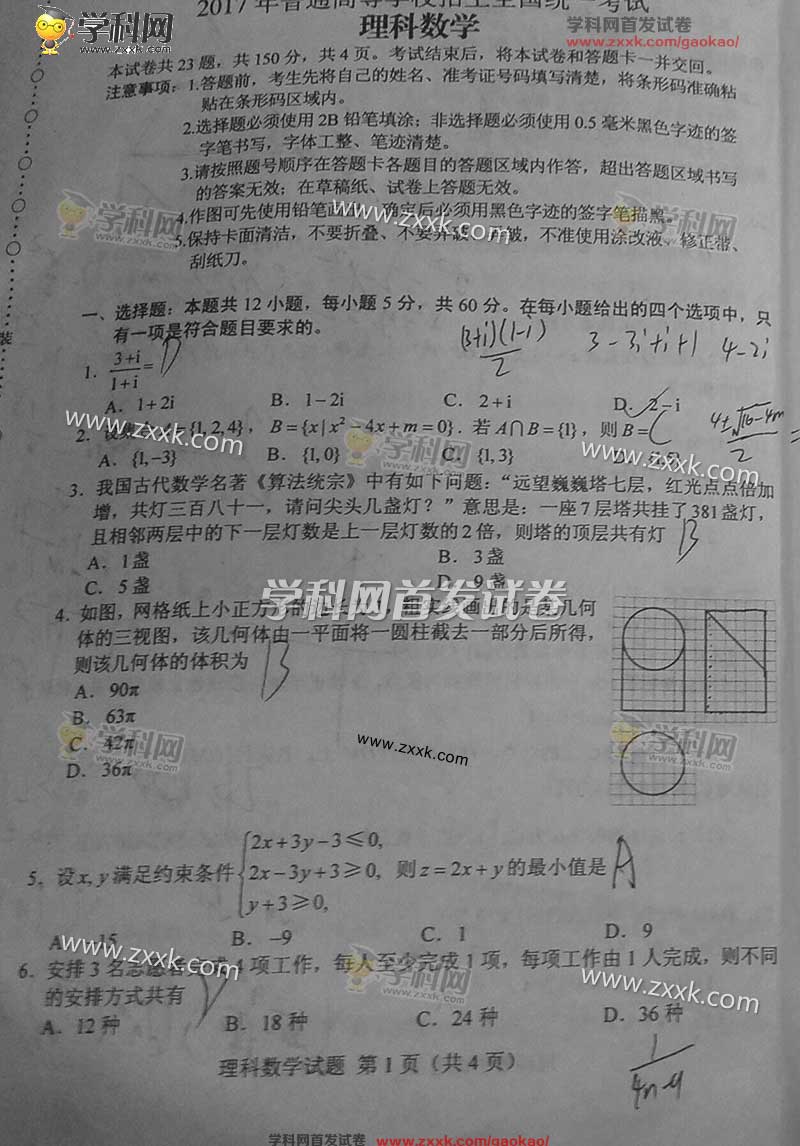 2017年普通高等学校招生全国统一考试
www.zxxk.com/gaokao/
学科网
www.zxxk.com
理科数学
本试卷共 23 题，共 150 分，共 4 页。考试结束后，将本试卷和答题卡一并交回。
注意事项：1.答题前，考生先将自己的姓名、准考证号码填写清楚，将条形码准确粘
贴在条形码区域内。
2.选择题必须使用 2B 铅笔填涂；非选择题必须使用 0.5 毫米黑色字迹的签
字笔书写，字体工整、笔迹清楚。
3.请按照题号顺序在答题卡各题目的答题区域内作答，超出答题区域书写
的答案无效；在草稿纸、试卷上答题无效。
学科网
学科网
www.zxxk.com
4.作图可先使用铅笔画出，确定后必须用黑色字迹的签字笔描黑。
5.保持卡面清洁，不要折叠、不要弄破、弄皱，不准使用涂改液、修正带、
刮纸刀。
装
一、选择题：本题共 12 小题，每小题 5 分，共 60 分。在每小题给出的四个选项中，只
有一项是符合题目要求的。
(3+i)(1-i)/2 3-3i+i+1 4-2i
1. (3+i)/(1+i)= D
A. 1+2i B. 1-2i C. 2+i D. 2-i
www.zxxk.com
学科网
2. 设集合 A={1,2,4}，B={x|x²-4x+m=0}. 若 A∩B={1}，则 B= C
4±√16-4m/2 =
A. {1,-3} B. {1,0} C. {1,3} D. {1,5}
www.zxxk.com
3. 我国古代数学名著《算法统宗》中有如下问题：“远望巍巍塔七层，红光点点倍加
增，共灯三百八十一，请问尖头几盏灯？”意思是：一座 7 层塔共挂了 381 盏灯，
且相邻两层中的下一层灯数是上一层灯数的 2 倍，则塔的顶层共有灯 B
A. 1 盏 B. 3 盏
C. 5 盏 D. 9 盏
学科网首发试卷
4. 如图，网格纸上小正方形的边长为 1，粗实线画出的是某几何
体的三视图，该几何体由一平面将一圆柱截去一部分后所得，
则该几何体的体积为 B
A. 90π
B. 63π
C. 42π
D. 36π
学科网
www.zxxk.com
学科网
5. 设 x, y 满足约束条件 {2x+3y-3⩽0, 2x-3y+3⩾0, y+3⩾0, 则 z=2x+y 的最小值是 A
A. -15 B. -9 C. 1 D. 9
www.zxxk.com
学科网
www.zxxk.com
6. 安排 3 名志愿者完成 4 项工作，每人至少完成 1 项，每项工作由 1 人完成，则不同
的安排方式共有 D
A. 12 种 B. 18 种 C. 24 种 D. 36 种
理科数学试题 第 1 页（共 4 页）
学科网首发试卷 www.zxxk.com/gaokao/